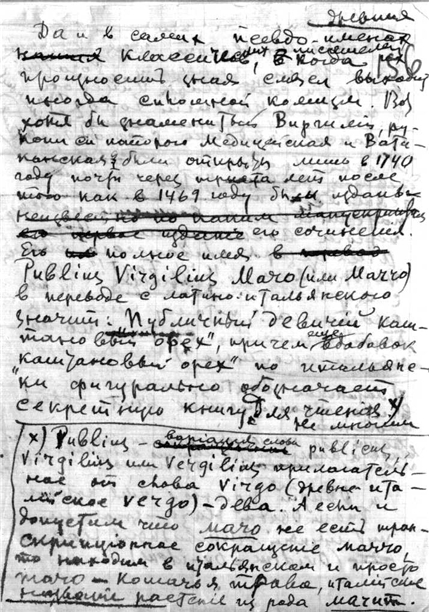 древния
Да и в самих псевдо-именах
классических писателей, когда их
произносишь зная смысл выходит
иногда сплошной комизм. Вот
хотя бы знаменитый Виргилий, ру-
кописи которого Медицейская и Вати-
канская были открыты лишь в 1740
году почти через триста лет после
того как в 1469 году были изданы
его сочинения.
Его полное имя в
Publius Virgilius Maчo (или Maччo)
в переводе с латино-итальянского
значит: „Публичный девичий каш-
тановый орех", причем вдобавок
„каштановый орех" по итальянс-
ки фигурально обозначает
секретную книгу для чтения x)
не многим
x) Publius - вариация слова publicus,
Virgilius или Vergilius прилагатель-
ное от слова Virgo (древне-ита-
лийское vergo) - дева. А если и
допустим что мачо не есть тран-
скрипционное сокращение маччо,
то находим в итальянском и просто
мачо - кошачья трава, италийское
название растения из рода